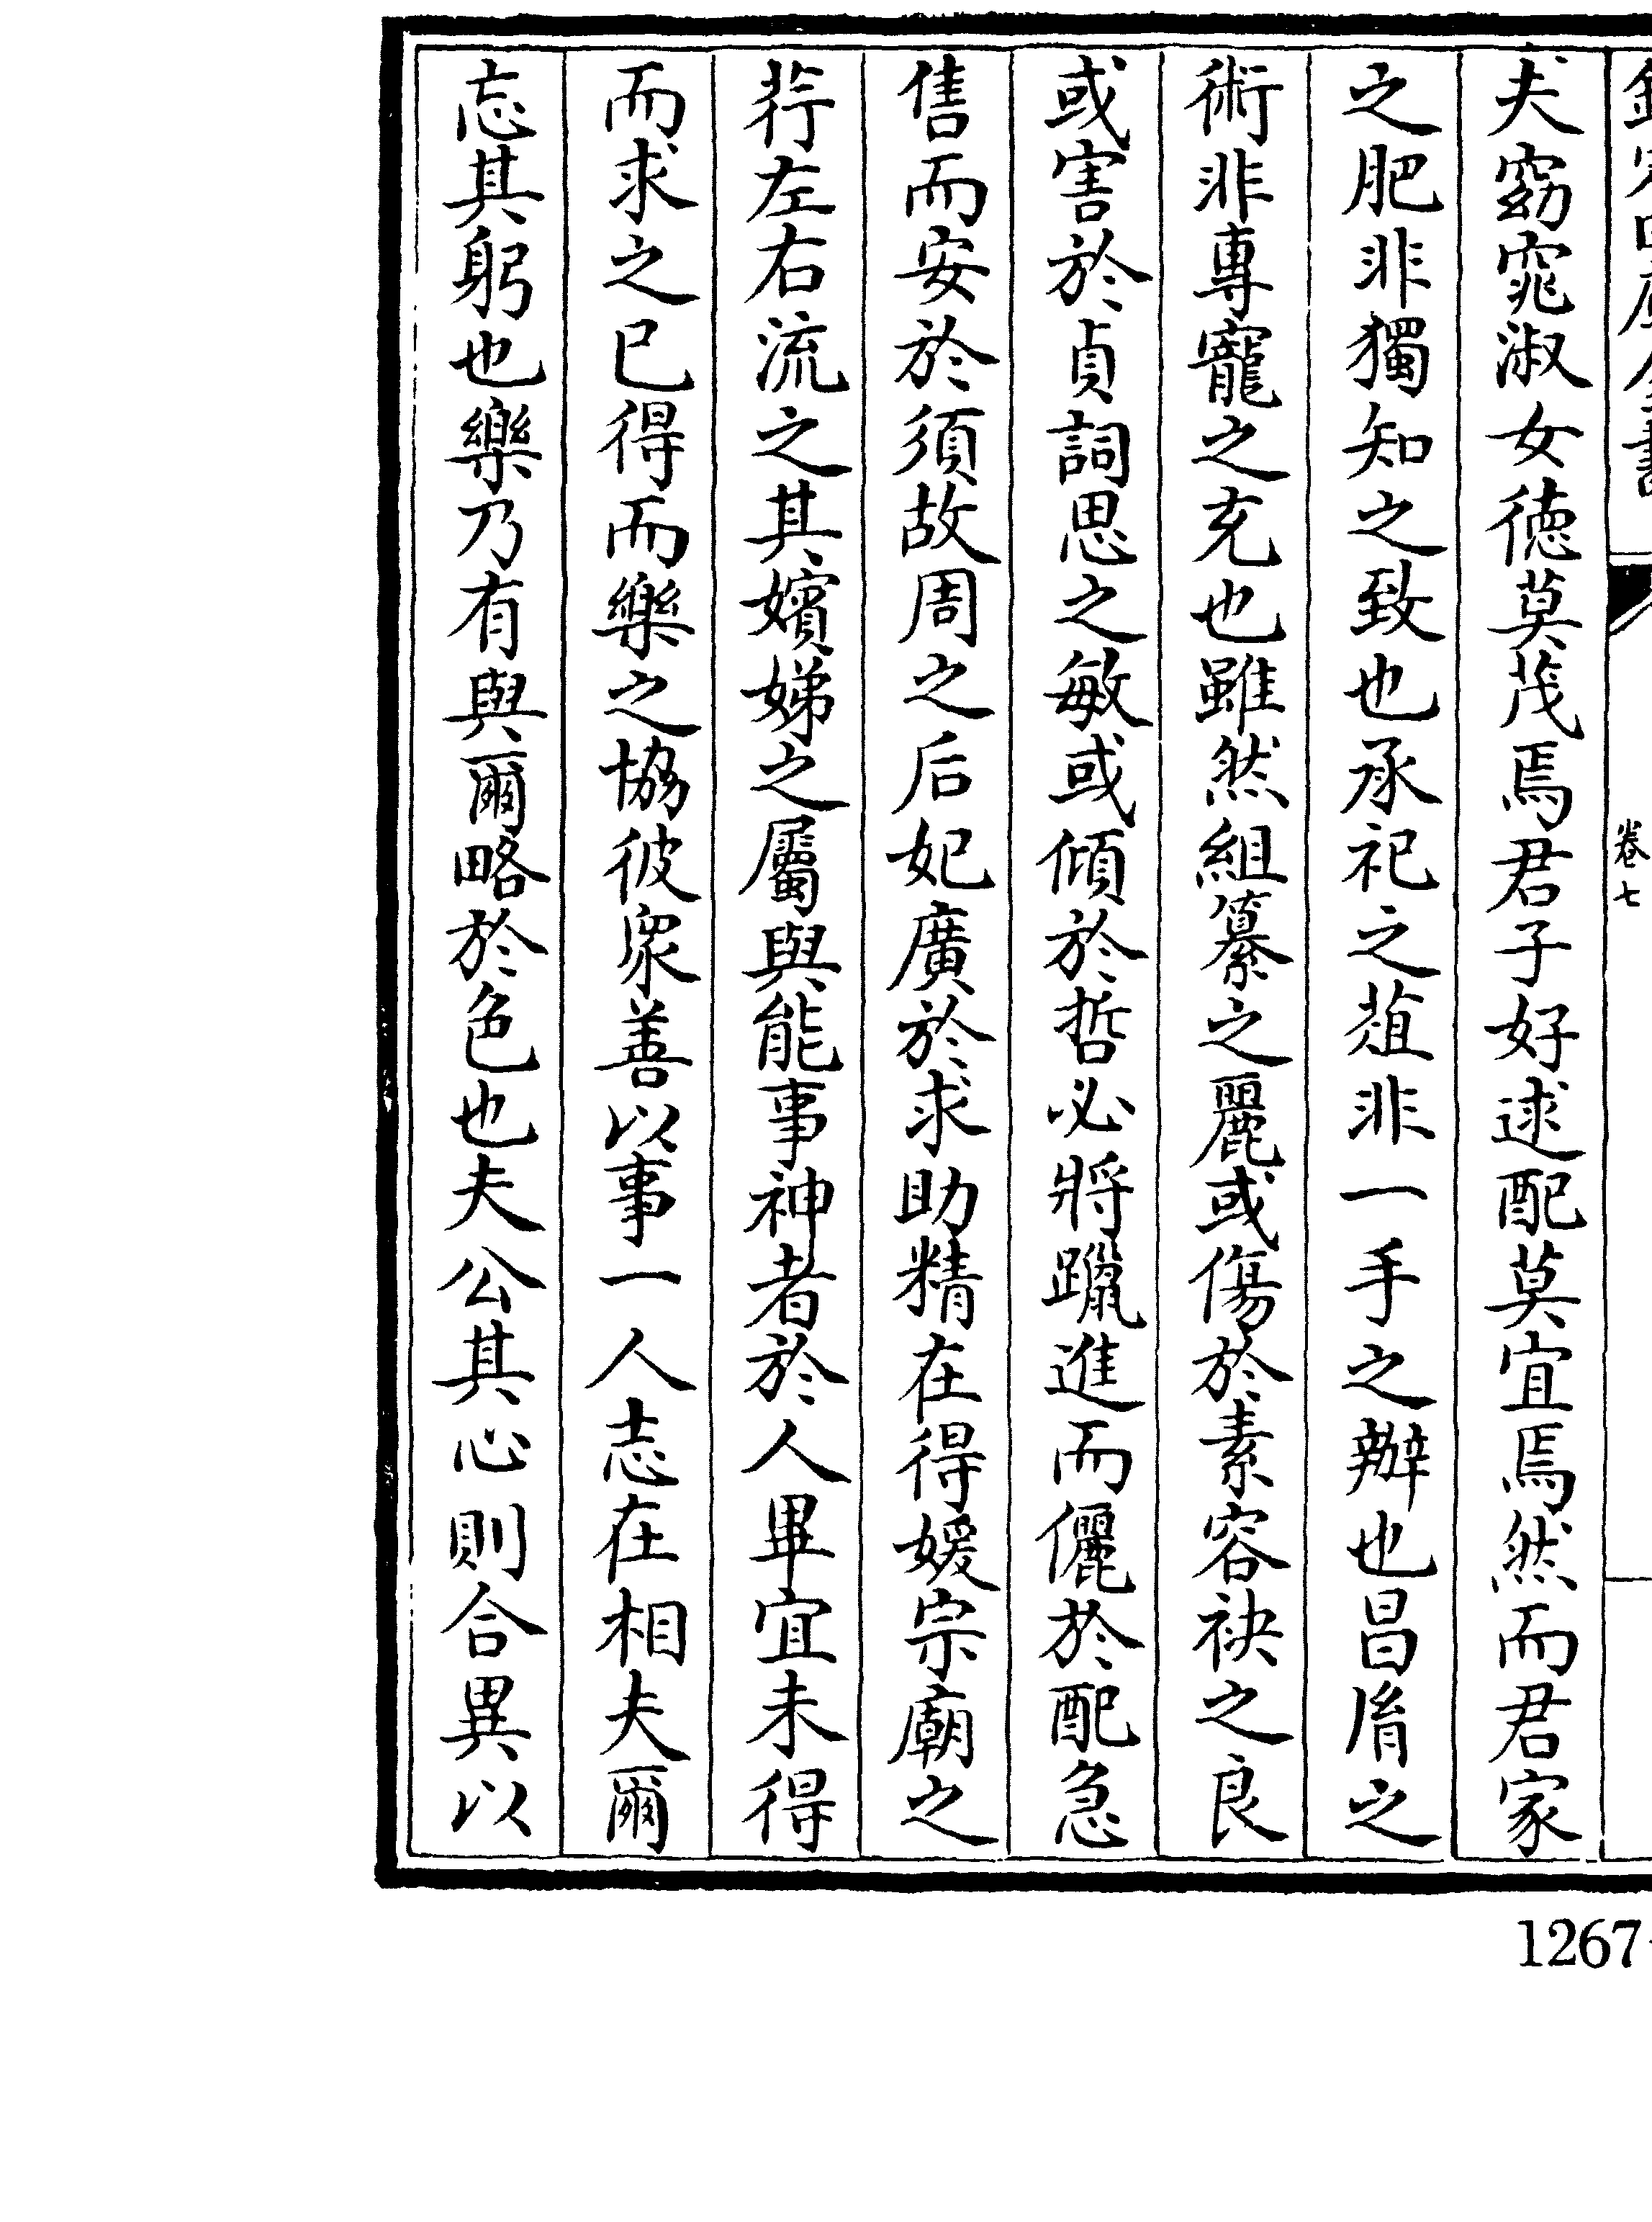 欽定四庫全書
卷七
夫窈窕淑女德莫茂焉君子好逑配莫宜焉然而君家
之肥非獨知之致也承祀之葅非一手之辦也昌胤之
術非專寵之充也雖然組纂之麗或傷於素容袂之良
或害於貞詞思之敏或傾於哲必將躐進而儷於配急
售而安於須故周之后妃廣於求助精在得媛宗廟之
荇左右流之其嬪娣之屬與能事神者於人畢宜未得
而求之已得而樂之協彼衆善以事一人志在相夫爾
忘其躬也樂乃有與爾略於色也夫公其心則合異以
1267